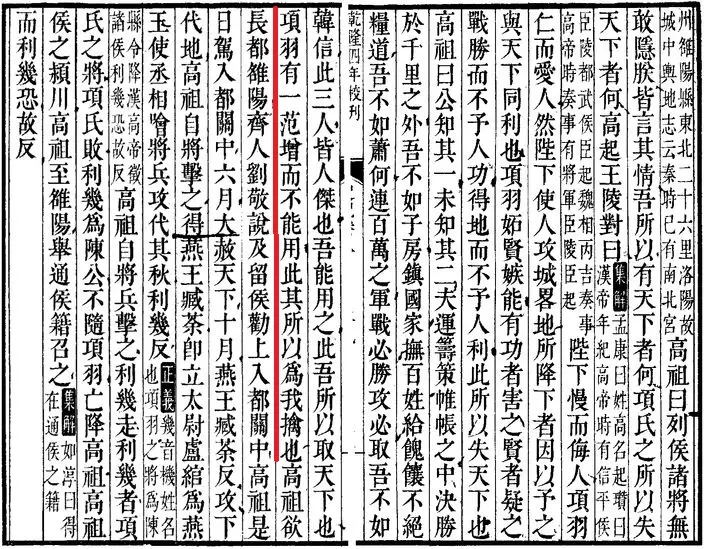 州雒陽縣東北二十六里洛陽故
城中輿地志云秦時已有南北宮
高祖曰列侯諸將無
敢隱朕皆言其情吾所以有天下者何項氏之所以失
天下者何高起王陵對曰集解
孟康曰姓高名起瓚曰
漢帝年紀高帝時有信平侯
臣陵都武侯臣起魏相丙吉奏事
高帝時奏事有將軍臣陵臣起
陛下慢而侮人項羽
仁而愛人然陛下使人攻城畧地所降下者因以予之
與天下同利也項羽妬賢嫉能有功者害之賢者疑之
戰勝而不予人功得地而不予人利此所以失天下也
高祖曰公知其一未知其二夫運籌策帷帳之中決勝
於千里之外吾不如子房鎮國家撫百姓給餽饟不絕
糧道吾不如蕭何連百萬之軍戰必勝攻必取吾不如
乾隆四年校刊
韓信此三人皆人傑也吾能用之此吾所以取天下也
項羽有一范增而不能用此其所以為我擒也高祖欲
長都雒陽齊人劉敬說及留侯勸上入都關中高祖是
日駕入都關中六月大赦天下十月燕王臧荼反攻下
代地高祖自將擊之得燕王臧荼卽立太尉盧綰為燕
王使丞相噲將兵攻代其秋利幾反正義
幾音機姓名
也項羽之將為陳
縣令降漢高帝徵
諸侯利幾恐故反
高祖自將兵擊之利幾走利幾者項
氏之將項氏敗利幾為陳公不隨項羽亡降高祖高祖
侯之潁川高祖至雒陽舉通侯籍召之集解
如淳曰得
在通侯之籍
而利幾恐故反